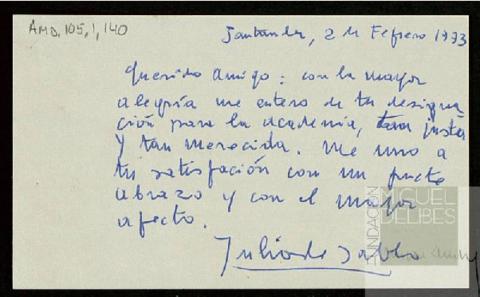 AMD, 105, 1, 140
Santander, 2 de Febrero 1973
Querido amigo: con la mayor
alegría me entero de tu designa
ción para la academia, tan justa
y tan merecida. Me uno a
tu satisfacción con un fuerte
abrazo y con el mejor
afecto.
Julio de Pablo
FUNDACIÓN
MIGUEL
DELIBES